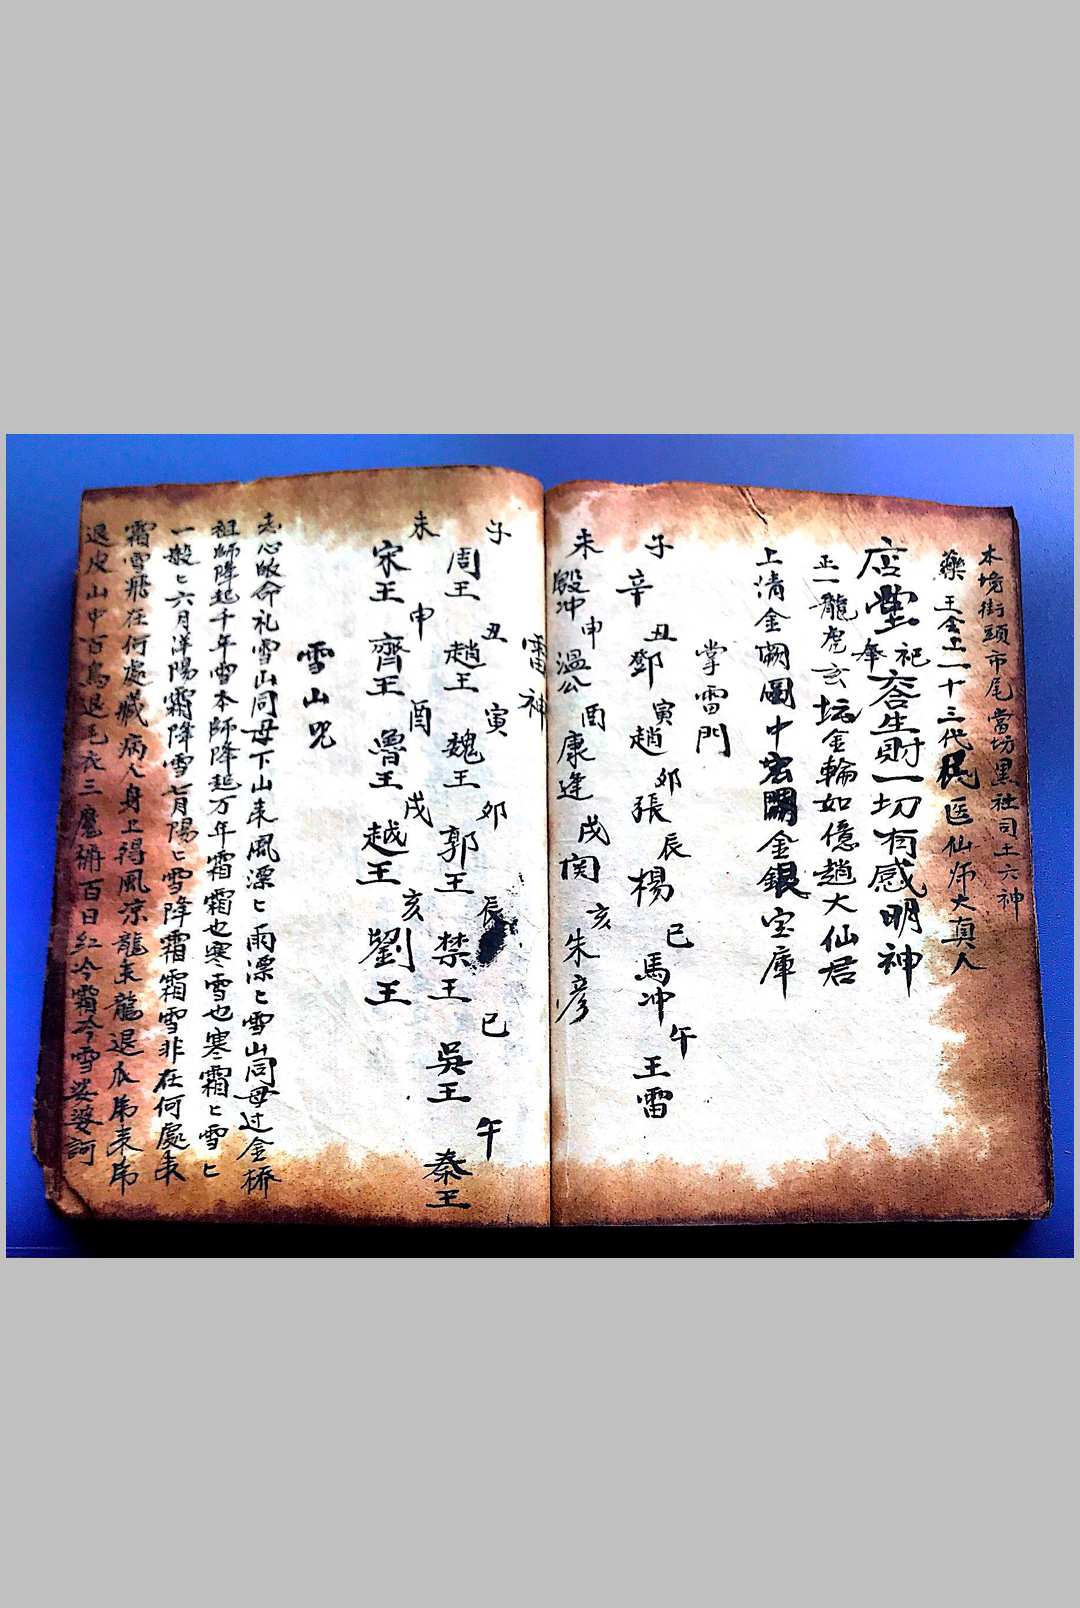 本境街頭市尾當坊里社司土六神
藥王全上一十三代民医仙师大真人
店堂奉祀 畜生財一切有感明神
正一龍虎玄坛金輪如億趙大仙君
上清金闕圖中宏開金銀宝庫
掌雷門
子辛 丑鄧 寅趙 卯張 辰楊 巳馬冲 午王雷
未殷冲 申温公 酉康逢 戌関 亥朱彦
雷神
子周王 丑趙王 寅魏王 卯郭王 辰禁王 巳吳王 午秦王
未宋王 申齊王 酉魯王 戌越王 亥劉王
雪山咒
志心皈命礼雪山同母下山来風漂ヒ雨漂ヒ雪山同母过金桥
祖師降起千年雪本師降起万年霜霜也寒雪也寒霜ヒ雪ヒ
一般ヒ六月洋陽霜降雪七月陽ヒ雪降霜霜雪非在何處来
霜雪飛在何處藏病人身上得風凉龍来龍退爪弟来弟
退皮山中百鳥退毛衣三魔梢百日紅冷霜冷雪娑婆訶